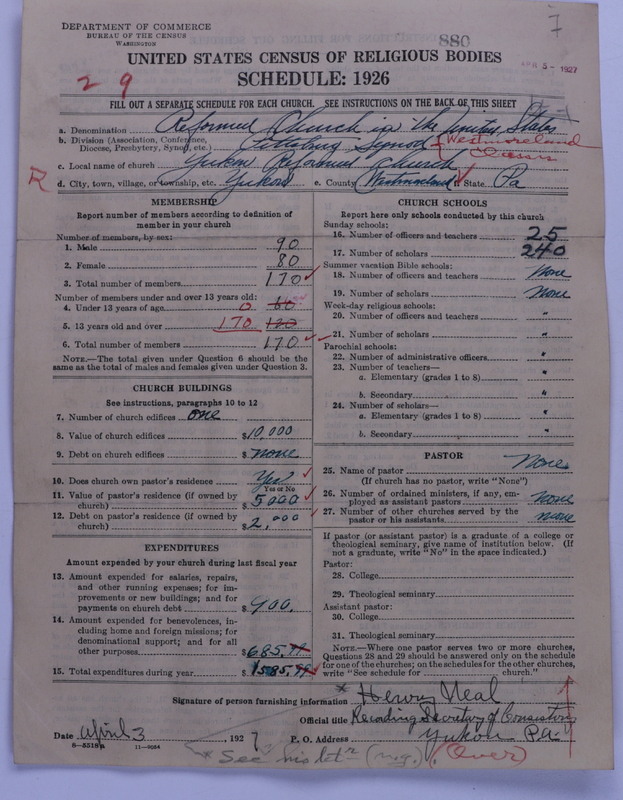 7
DEPARTMENT OF COMMERCE
BUREAU OF THE CENSUS
WASHINGTON
880
UNITED STATES CENSUS OF RELIGIOUS BODIES
APR 5 - 1927
2 9
SCHEDULE: 1926
FILL OUT A SEPARATE SCHEDULE FOR EACH CHURCH. SEE INSTRUCTIONS ON THE BACK OF THIS SHEET
a. Denomination Reformed Church in the United States
b. Division (Association, Conference, Diocese, Presbytery, Synod, etc.) Pittsburg Synod Westmoreland Classis
c. Local name of church Yukon Reformed Church
R d. City, town, village, or township, etc. Yukon e. County Westmoreland f. State Pa
MEMBERSHIP
Report number of members according to definition of
member in your church
Number of members, by sex:
1. Male 90
2. Female 80
3. Total number of members 170
Number of members under and over 13 years old:
4. Under 13 years of age 0
5. 13 years old and over 170 120
6. Total number of members 170
NOTE.—The total given under Question 6 should be the
same as the total of males and females given under Question 3.
CHURCH BUILDINGS
See instructions, paragraphs 10 to 12
7. Number of church edifices one
8. Value of church edifices $10,000
9. Debt on church edifices $ none
10. Does church own pastor's residence Yes
Yes or No
11. Value of pastor's residence (if owned by
church) $ 5000
12. Debt on pastor's residence (if owned by
church) $ 2,000
EXPENDITURES
Amount expended by your church during last fiscal year
13. Amount expended for salaries, repairs,
and other running expenses; for im-
provements or new buildings; and for
payments on church debt $ 900.
14. Amount expended for benevolences, in-
cluding home and foreign missions; for
denominational support; and for all
other purposes $685.77
15. Total expenditures during year $ 1585.77
CHURCH SCHOOLS
Report here only schools conducted by this church
Sunday schools:
16. Number of officers and teachers 25
17. Number of scholars 240
Summer vacation Bible schools:
18. Number of officers and teachers None
19. Number of scholars None
Week-day religious schools:
20. Number of officers and teachers "
21. Number of scholars "
Parochial schools:
22. Number of administrative officers "
23. Number of teachers—
a. Elementary (grades 1 to 8) "
b. Secondary "
24. Number of scholars—
a. Elementary (grades 1 to 8) "
b. Secondary "
PASTOR
25. Name of pastor None
(If church has no pastor, write "None")
26. Number of ordained ministers, if any, em-
ployed as assistant pastors None
27. Number of other churches served by the
pastor or his assistants None
If pastor (or assistant pastor) is a graduate of a college or
theological seminary, give name of institution below. (If
not a graduate, write "No" in the space indicated.)
Pastor:
28. College
29. Theological seminary
Assistant pastor:
30. College
31. Theological seminary
NOTE.—Where one pastor serves two or more churches,
Questions 28 and 29 should be answered only on the schedule
for one of the churches; on the schedules for the other churches,
write "See schedule for church."
Signature of person furnishing information * Henry Neal
Official title Recording Secretary of Consistory
Date April 3, 1927 P. O. Address Yukon Pa.
8-5518a 11-9064
* See his letr (n.g.) (Over)